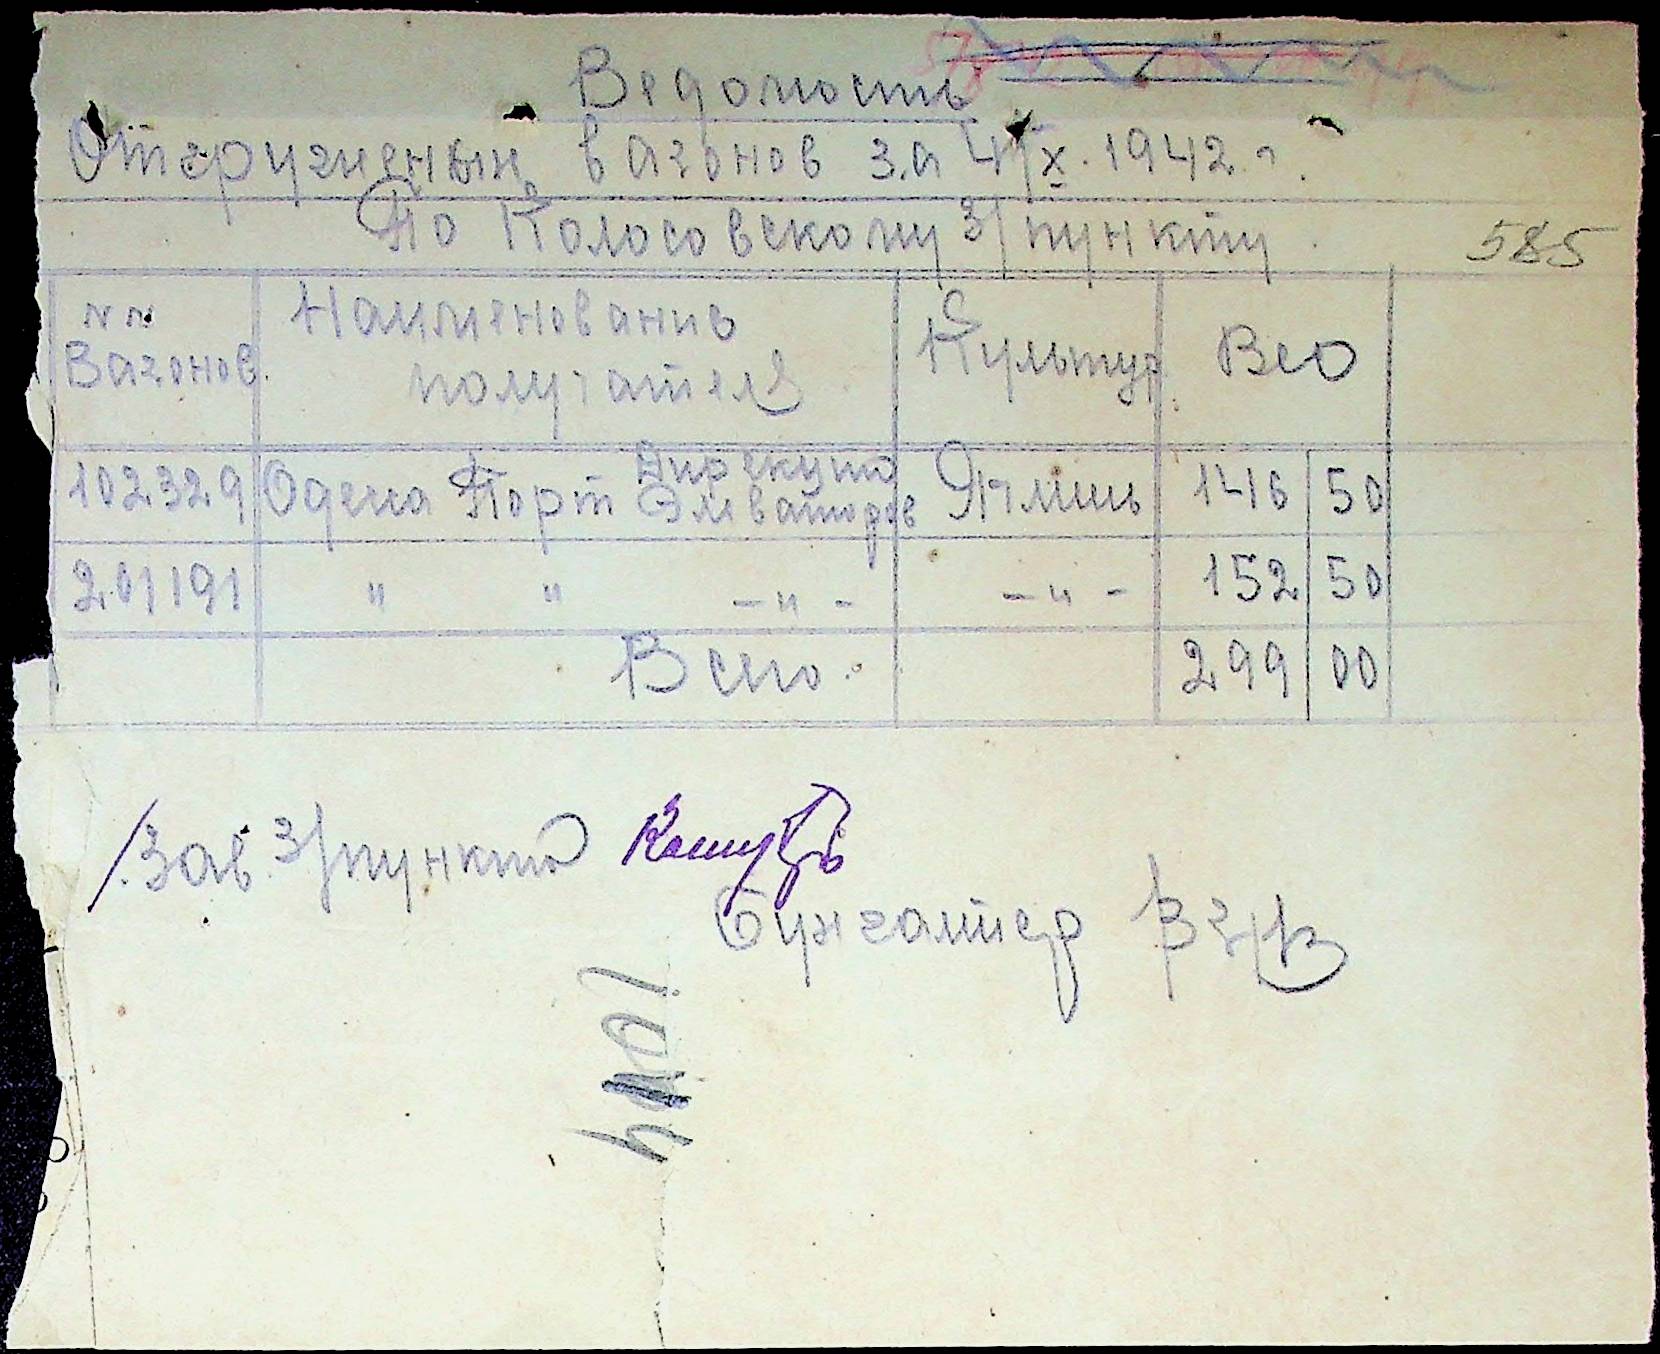 Ведомость
Отгруженых вагонов за 4/X. 1942 г.
По Колосовскому З/пункту
585
№ №
Вагонов.
Наименование
получателя
Культур
Вес
102329 Одесса Порт Дирекция Элеваторов Ячмень 146 50
201191 " " –"– –"– 152 50
Всего 299 00
Зав. З/пункта
Бухгалтер